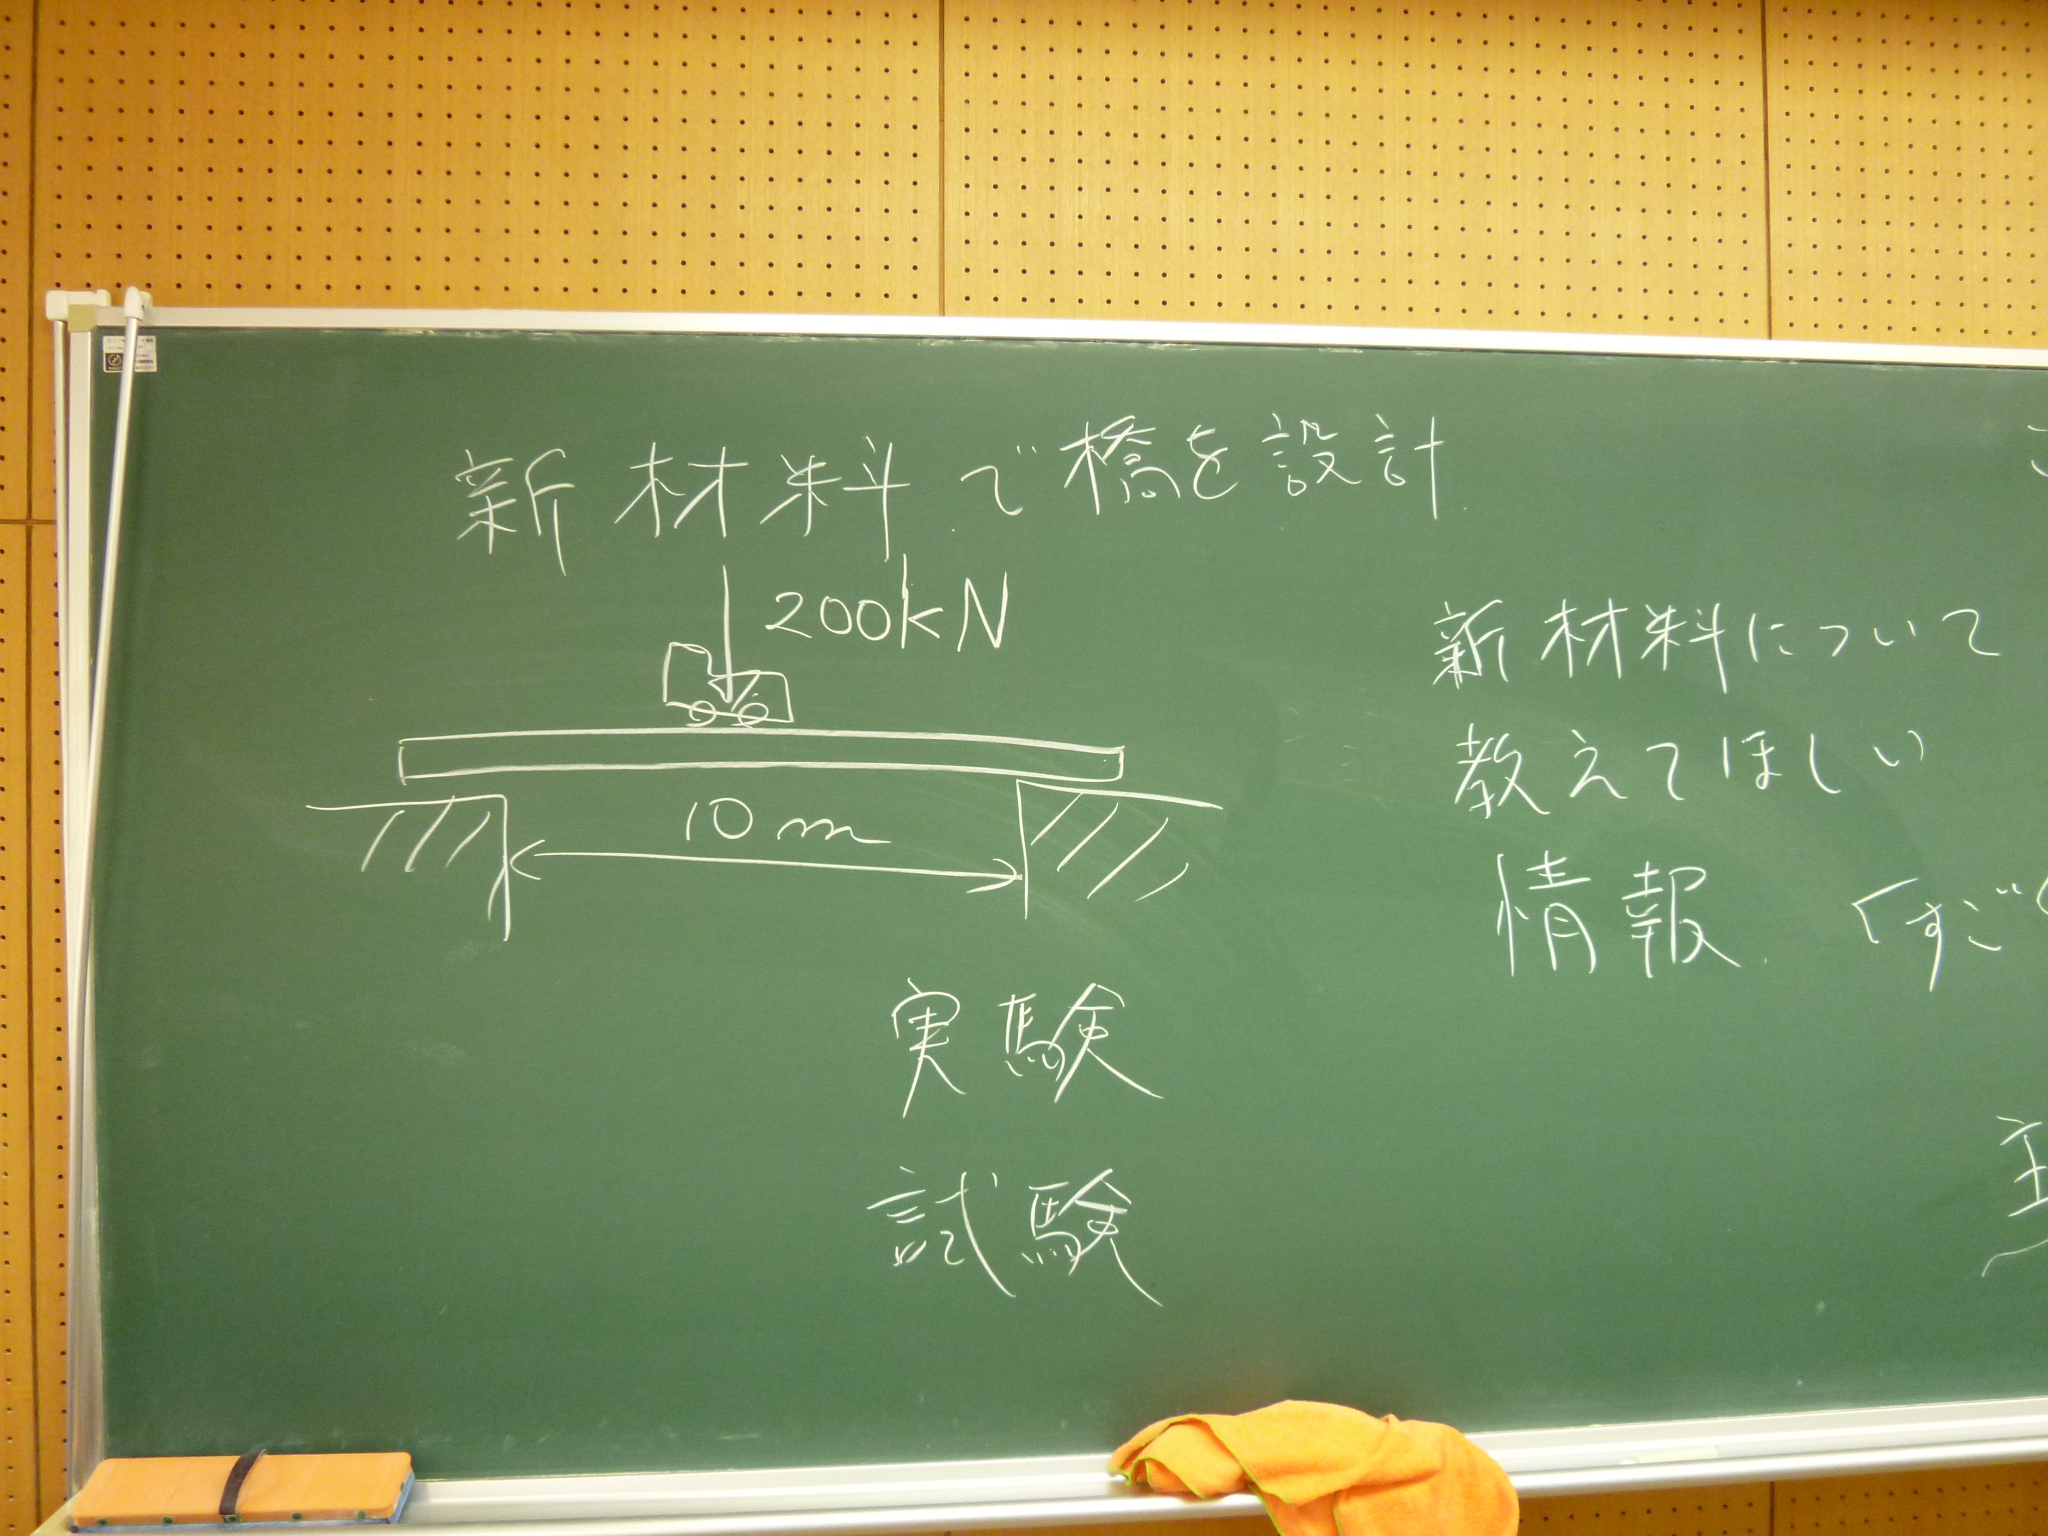 新材料で橋を設計
200kN
10m
実験
試験
新材料について
教えてほしい
情報